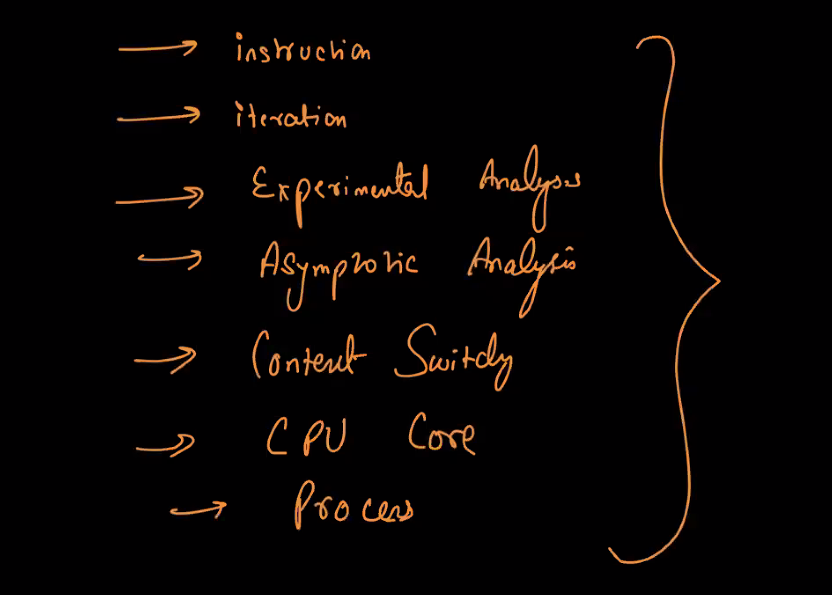 instruction
iteration
Experimental Analysis
Asymptotic Analysis
Context Switchy
CPU Core
Process